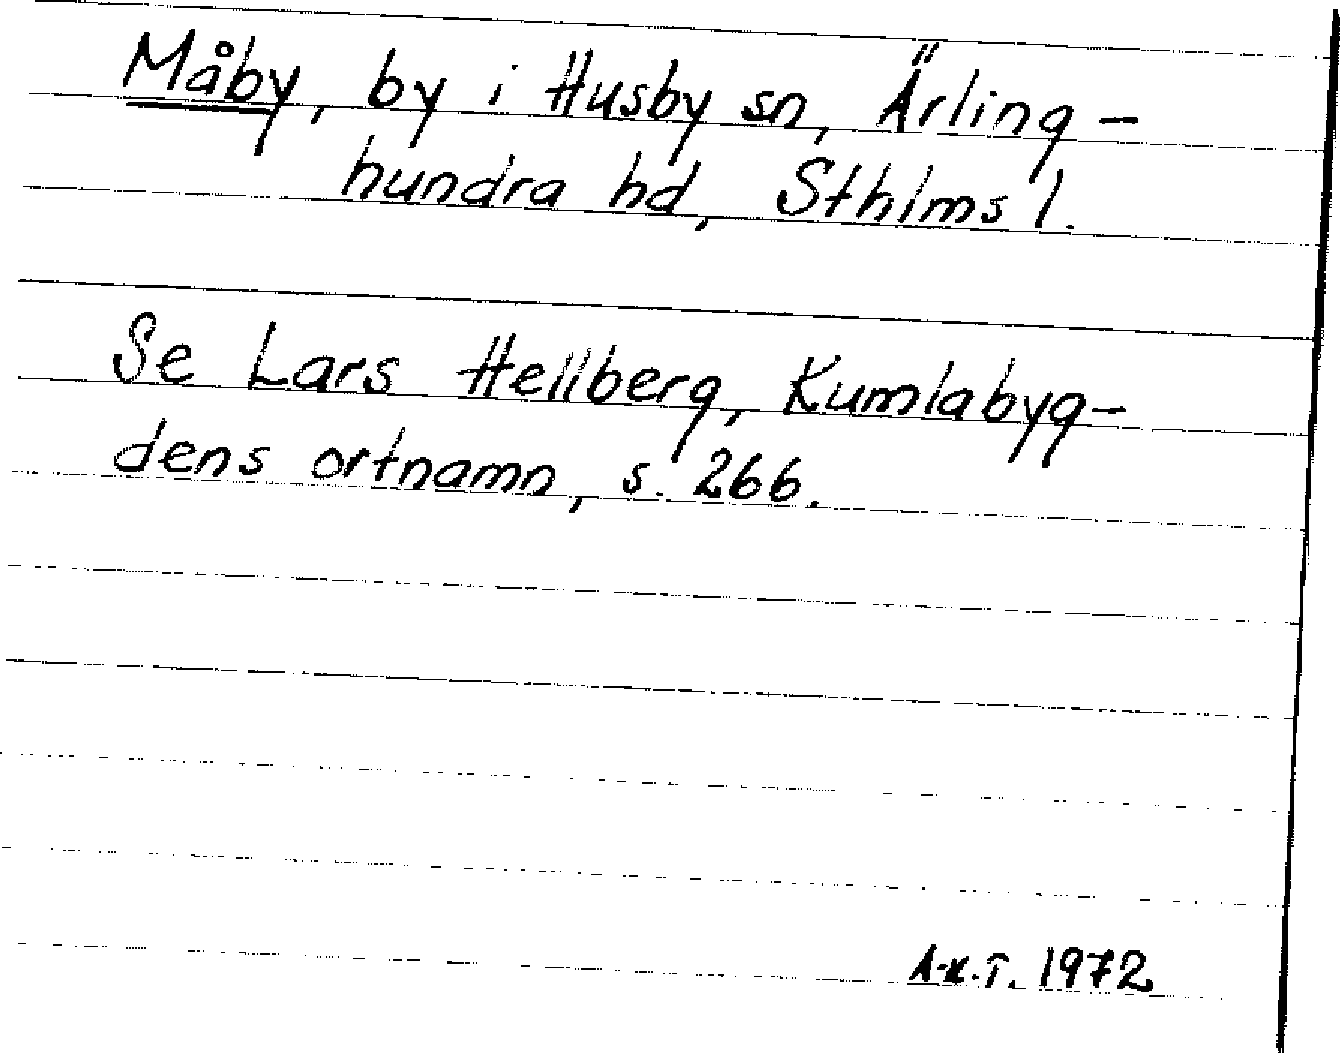 Måby, by i Husby sn, Ärling-
hundra hd, Sthlms l.
Se Lars Hellberg, Kumlabyg-
dens ortnamn, s. 266.
A-K.T. 1972